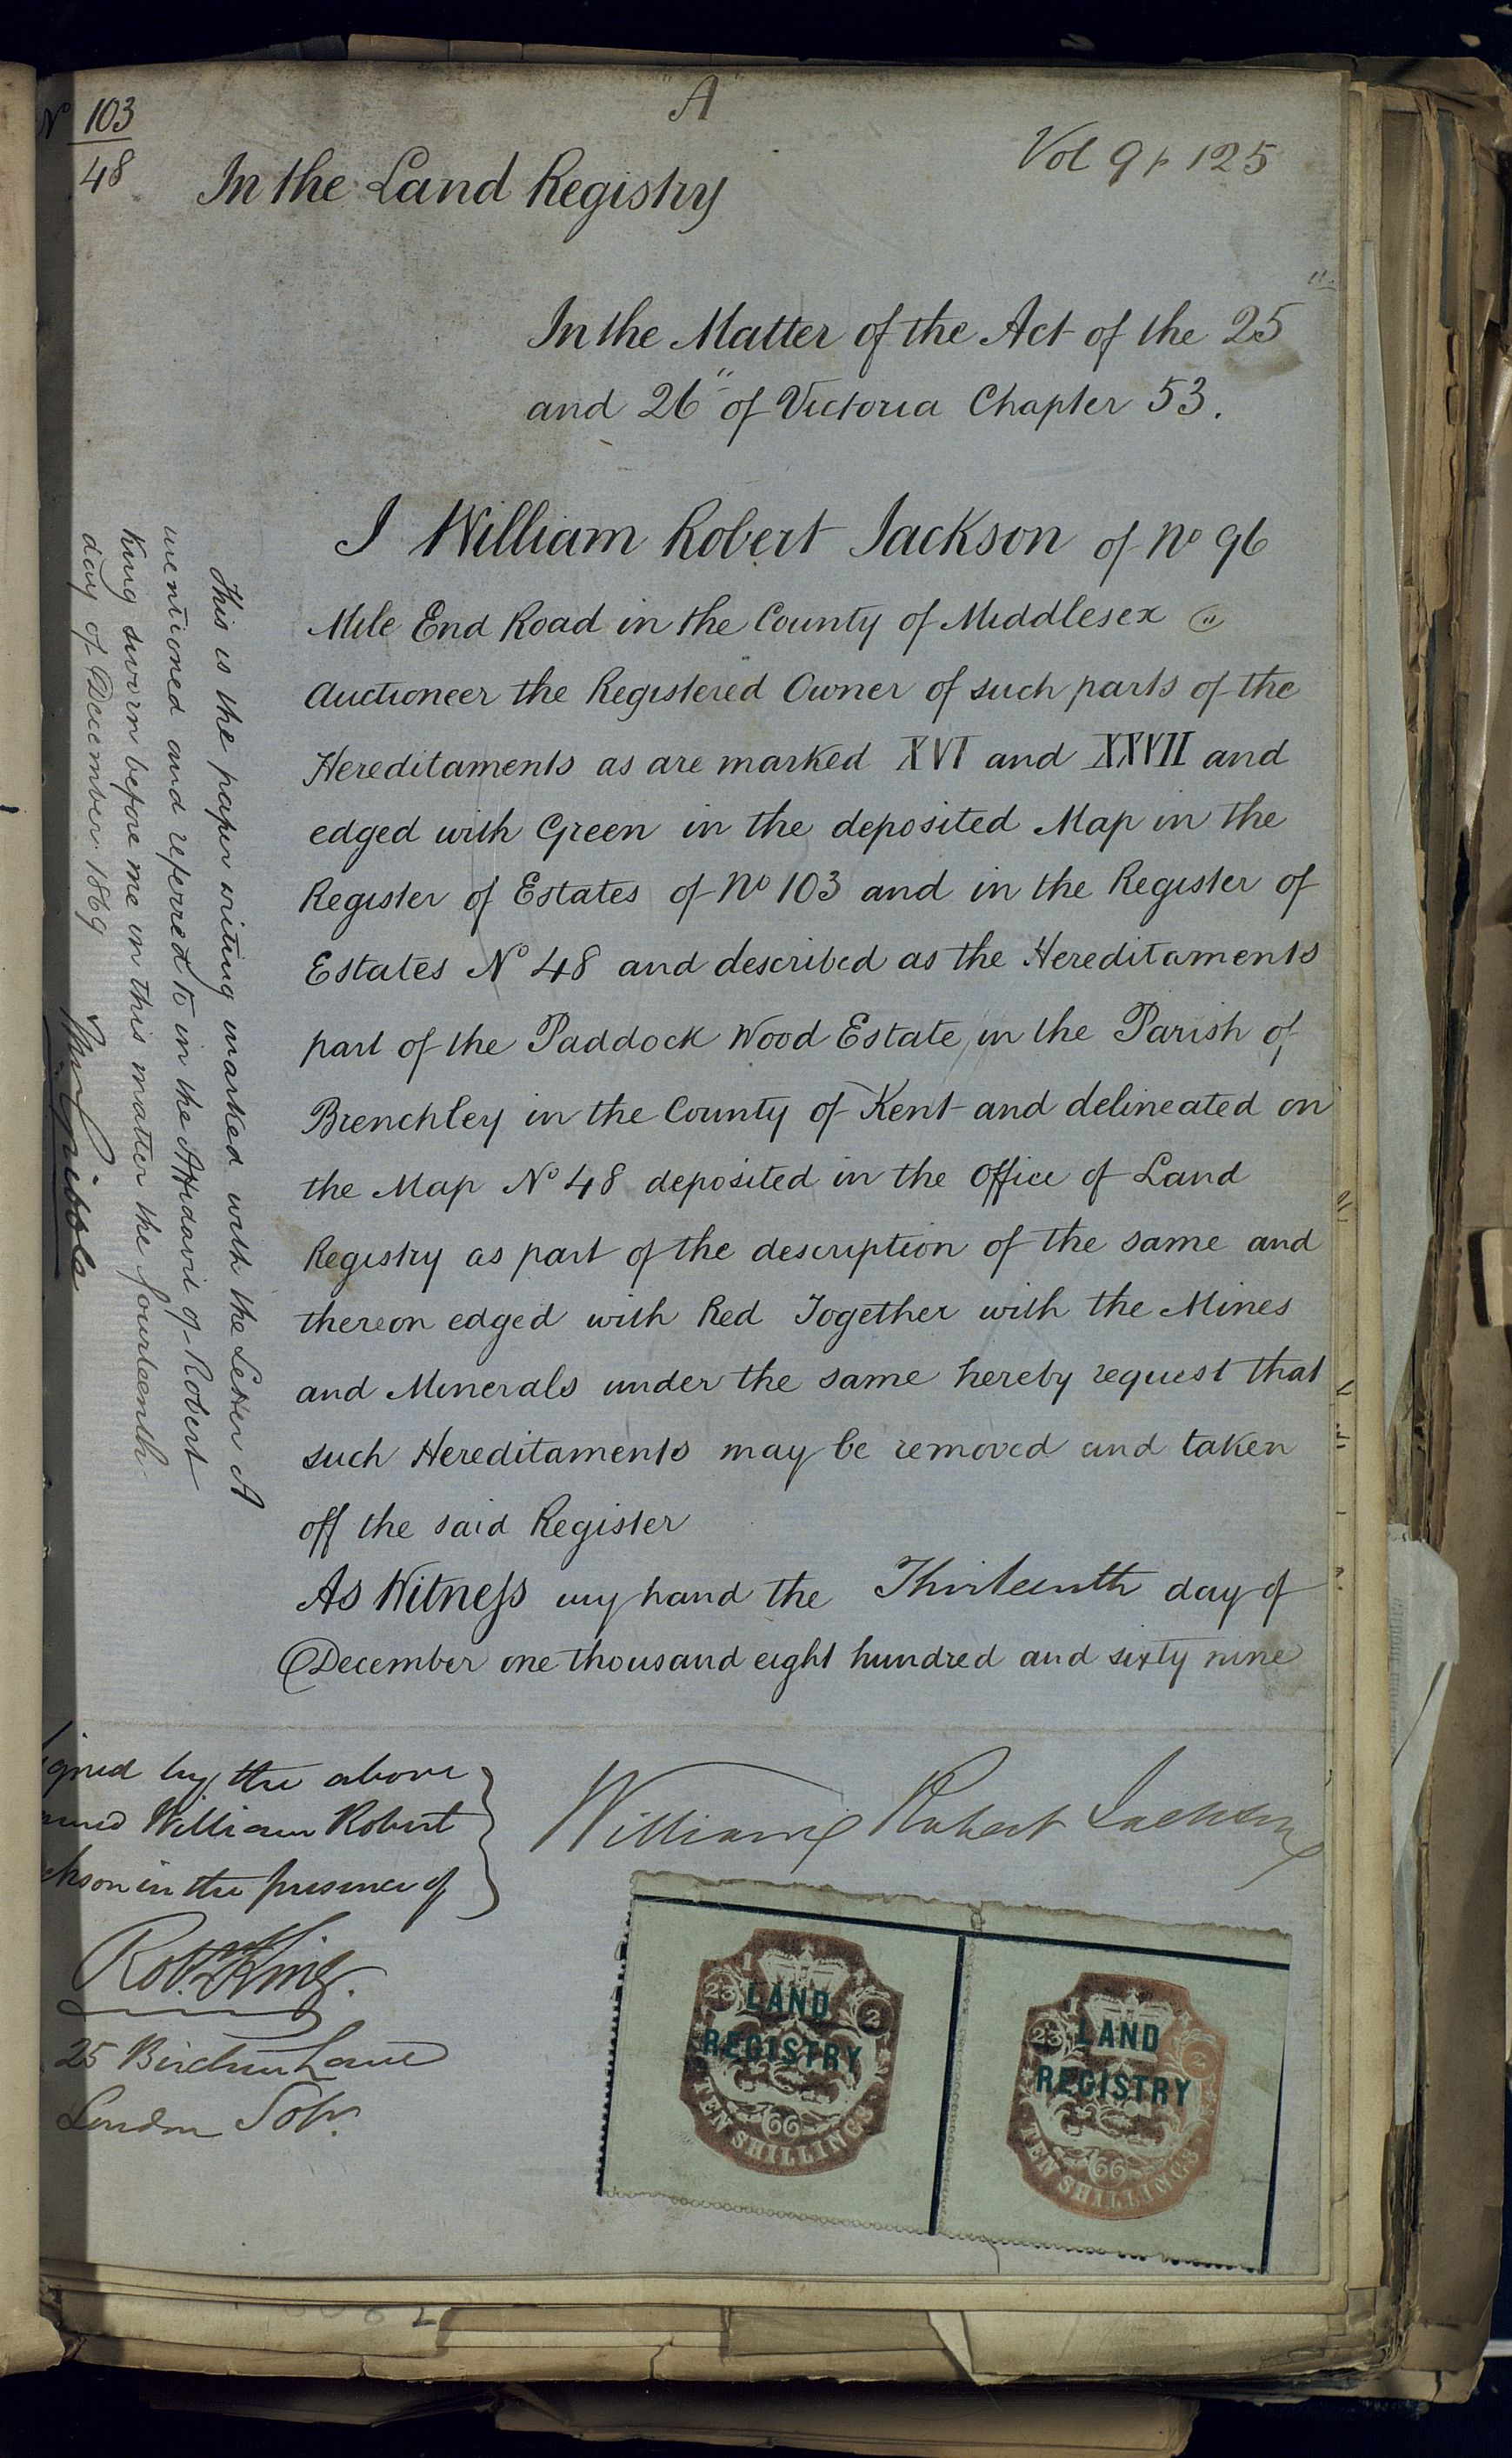 "A"
No 103
48
Vol 9 p 125
In the Land Registry
In the Matter of the Act of the 25"
and 26" of Victoria Chapter 53.
I William Robert Jackson of No 96
Mile End Road in the County of Middlesex
Auctioneer the Registered Owner of such parts of the
Hereditaments as are marked XVI and XXVII and
edged with Green in the deposited Map in the
Register of Estates of No 103 and in the Register of
Estates No 48 and described as the Hereditaments
part of the Paddock Wood Estate in the Parish of
Brenchley in the County of Kent and delineated on
the Map No 48 deposited in the Office of Land
Registry as part of the description of the same and
thereon edged with Red Together with the Mines
and Minerals under the same hereby request that
such Hereditaments may be removed and taken
off the said Register
As Witness my hand the Thirteenth day of
December one thousand eight hundred and sixty nine
This is the paper writing marked with the Letter A
mentioned and referred to in the Affidavit of Robert
King sworn before me in this matter the fourteenth
day of December 1869
igned by the above
amed William Robert
ckson in the presence of
William Robert Jackson
Robt King.
25 Birchin Lane
London Solr.
1 1
23 2
LAND
REGISTRY
66
TEN SHILLINGS
1 1
23 2
LAND
REGISTRY
66
TEN SHILLINGS